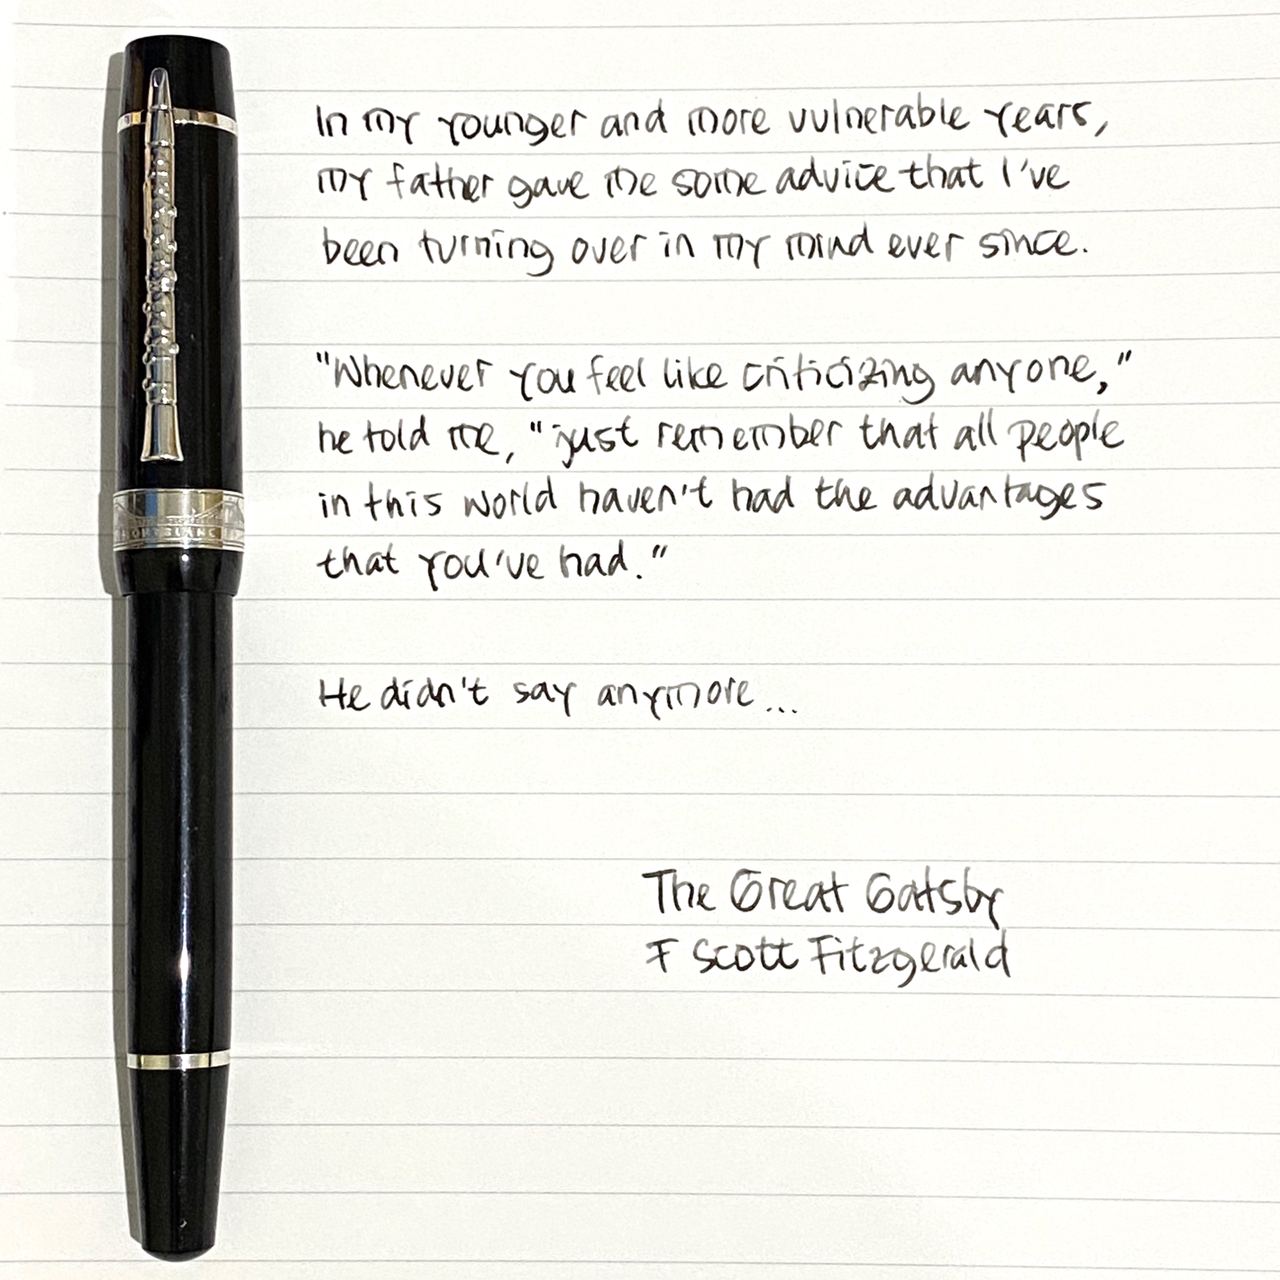 In my younger and more vulnerable years,
my father gave me some advice that I've
been turning over in my mind ever since.
"Whenever you feel like criticizing anyone,"
he told me, "just remember that all people
in this world haven't had the advantages
that you've had."
He didn't say anymore...
The Great Gatsby
F Scott Fitzgerald
MONTBLANC